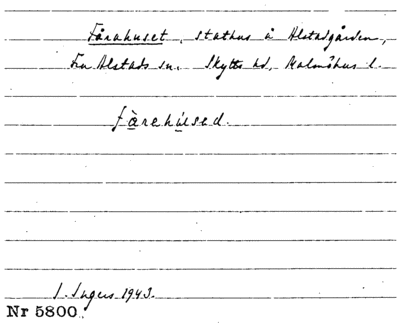 Fårahuset, stathus å Alstadgården,
Fru Alstads sn. Skytts hd, Malmöhus l.
fårehused.
I. Ingers 1943.
Nr 5800